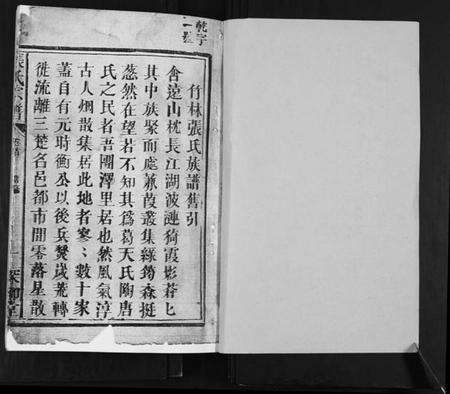 乾字
一號
竹林張氏族譜舊引
含遠山枕長江湖波漣猗霞影蒼
其中族聚而處蒹葭叢集綠筠森挺
悠然在望若不知其爲葛天氏陶唐
氏之民者吾團澤里居也然風氣淳
古人烟散集居此地者寥〻數十家
蓋自有元時衡公以後兵燹歲荒轉
徙流離三楚名邑都市開零落星散
張氏宗譜